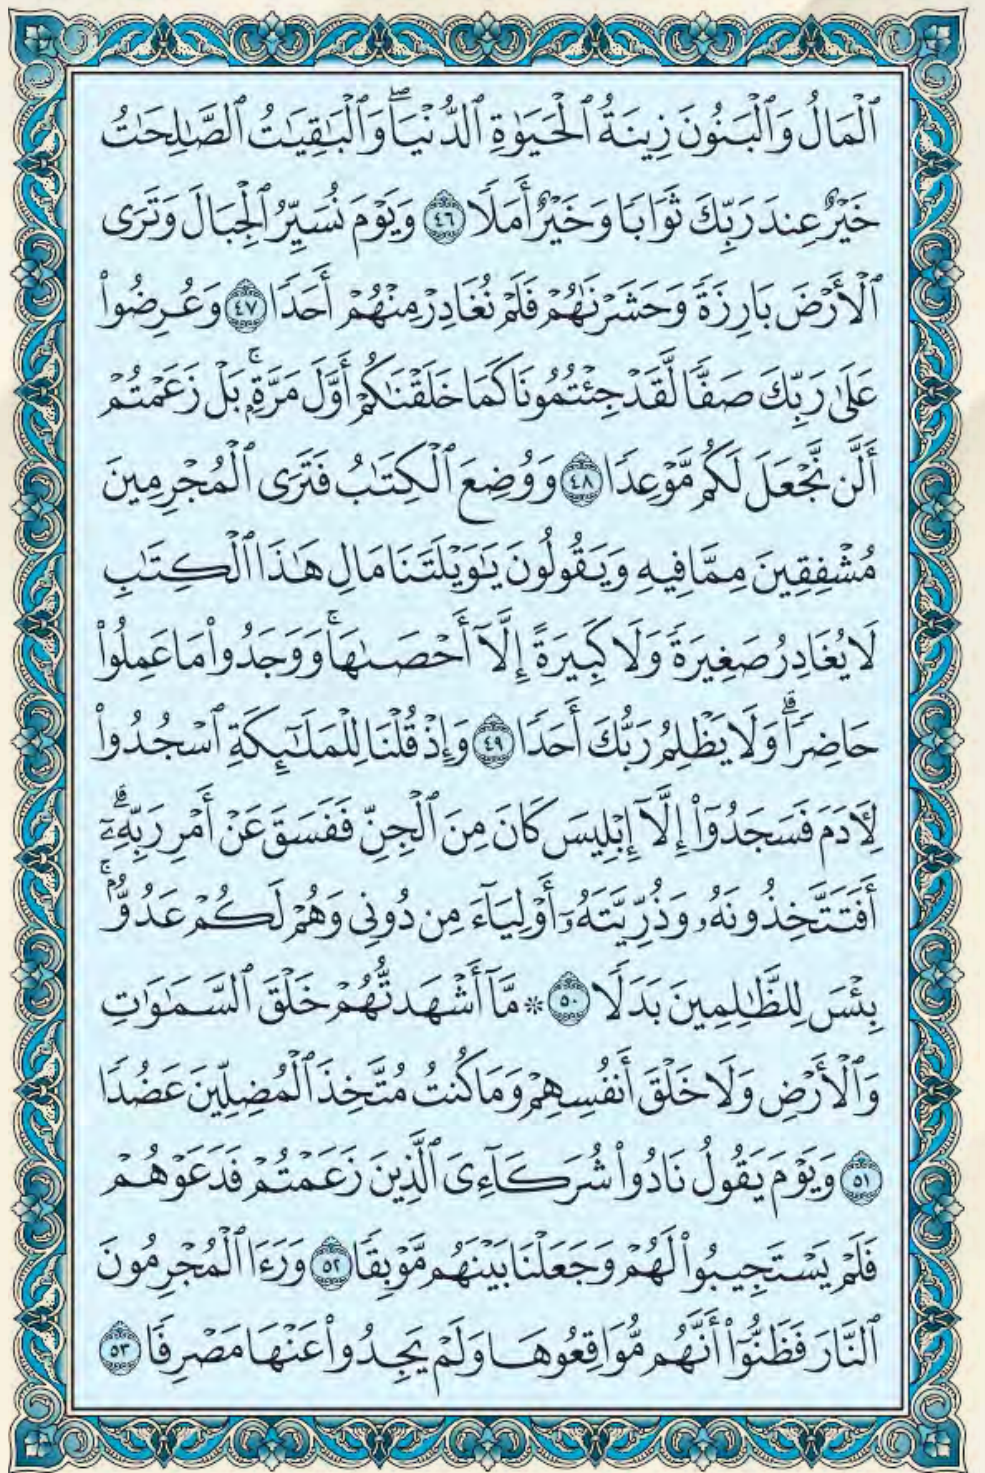 ٱلْمَالُ وَٱلْبَنُونَ زِينَةُ ٱلْحَيَوٰةِ ٱلدُّنْيَاۖ وَٱلْبَٰقِيَٰتُ ٱلصَّٰلِحَٰتُ
خَيْرٌ عِندَ رَبِّكَ ثَوَابًا وَخَيْرٌ أَمَلًا ٤٦ وَيَوْمَ نُسَيِّرُ ٱلْجِبَالَ وَتَرَى
ٱلْأَرْضَ بَارِزَةً وَحَشَرْنَٰهُمْ فَلَمْ نُغَادِرْ مِنْهُمْ أَحَدًا ٤٧ وَعُرِضُوا۟
عَلَىٰ رَبِّكَ صَفًّا لَّقَدْ جِئْتُمُونَا كَمَا خَلَقْنَٰكُمْ أَوَّلَ مَرَّةٍۭۚ بَلْ زَعَمْتُمْ
أَلَّن نَّجْعَلَ لَكُم مَّوْعِدًا ٤٨ وَوُضِعَ ٱلْكِتَٰبُ فَتَرَى ٱلْمُجْرِمِينَ
مُشْفِقِينَ مِمَّا فِيهِ وَيَقُولُونَ يَٰوَيْلَتَنَا مَالِ هَٰذَا ٱلْكِتَٰبِ
لَا يُغَادِرُ صَغِيرَةً وَلَا كَبِيرَةً إِلَّآ أَحْصَىٰهَاۚ وَوَجَدُوا۟ مَا عَمِلُوا۟
حَاضِرًاۗ وَلَا يَظْلِمُ رَبُّكَ أَحَدًا ٤٩ وَإِذْ قُلْنَا لِلْمَلَٰٓئِكَةِ ٱسْجُدُوا۟
لِءَادَمَ فَسَجَدُوٓا۟ إِلَّآ إِبْلِيسَ كَانَ مِنَ ٱلْجِنِّ فَفَسَقَ عَنْ أَمْرِ رَبِّهِۦٓۗ
أَفَتَتَّخِذُونَهُۥ وَذُرِّيَّتَهُۥٓ أَوْلِيَآءَ مِن دُونِى وَهُمْ لَكُمْ عَدُوٌّۢۚ
بِئْسَ لِلظَّٰلِمِينَ بَدَلًا ٥٠ * مَّآ أَشْهَدتُّهُمْ خَلْقَ ٱلسَّمَٰوَٰتِ
وَٱلْأَرْضِ وَلَا خَلْقَ أَنفُسِهِمْ وَمَا كُنتُ مُتَّخِذَ ٱلْمُضِلِّينَ عَضُدًا
٥١ وَيَوْمَ يَقُولُ نَادُوا۟ شُرَكَآءِىَ ٱلَّذِينَ زَعَمْتُمْ فَدَعَوْهُمْ
فَلَمْ يَسْتَجِيبُوا۟ لَهُمْ وَجَعَلْنَا بَيْنَهُم مَّوْبِقًا ٥٢ وَرَءَا ٱلْمُجْرِمُونَ
ٱلنَّارَ فَظَنُّوٓا۟ أَنَّهُم مُّوَاقِعُوهَا وَلَمْ يَجِدُوا۟ عَنْهَا مَصْرِفًا ٥٣